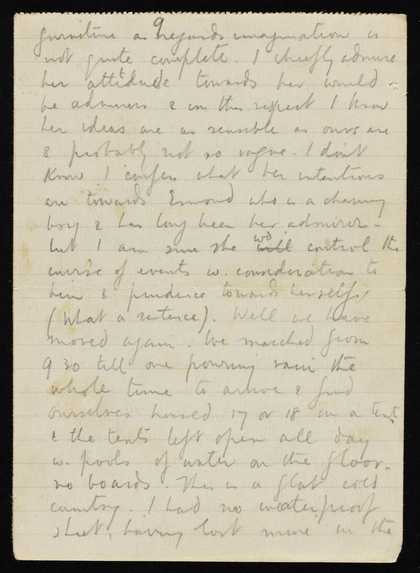 furniture as regards imagination is
not quite complete. I chiefly admire
her attitude towards her would
be admirers & in this respect I know
her ideas are as sensible as ours are
& probably not so vague. I dont
know I confess what her intentions
are towards Esmond who is a charming
boy & has long been her admirer -
but I am sure she wd control the
course of events w. consideration to
him & prudence towards herself,
(What a sentence). Well we have
moved again. We marched from
9 30 till one pouring rain the
whole time to arrive & find
ourselves housed 17 or 18 in a tent
& the tents left open all day
w. pools of water on the floor -
no boards. This is a flat cold
country. I had no waterproof
sheet, having lost mine in the